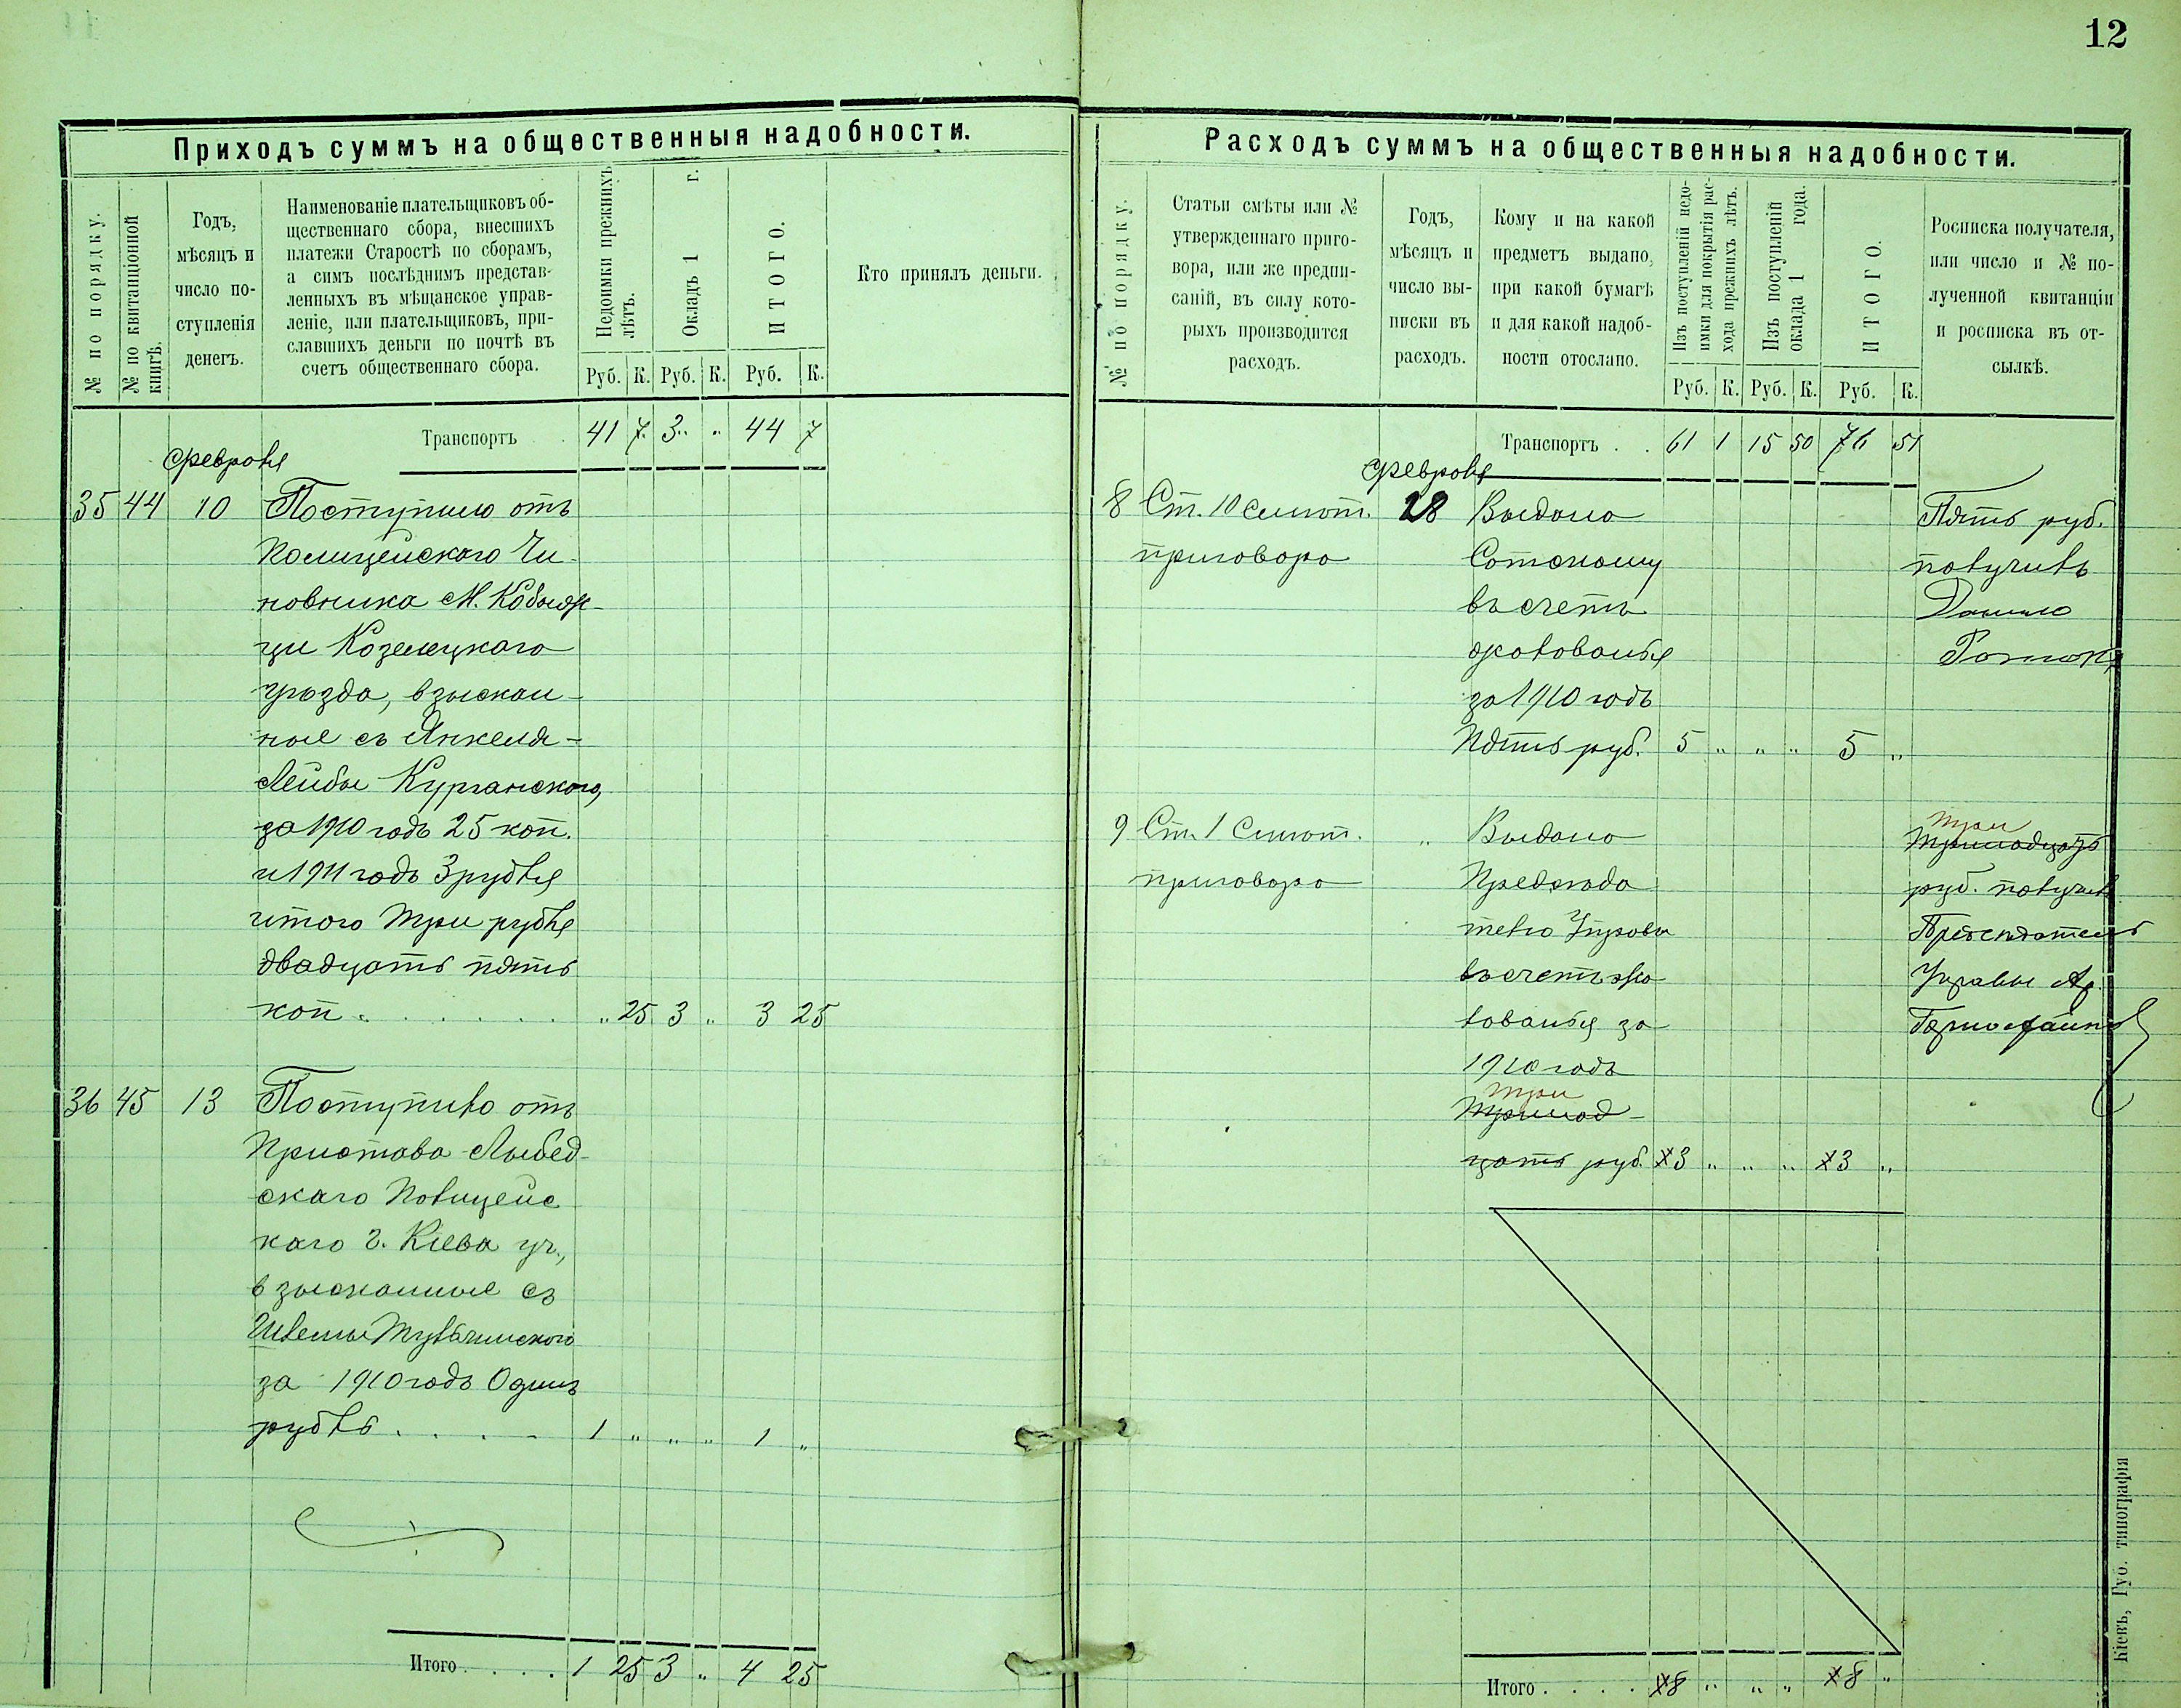 12
Приходъ суммъ на общественныя надобности.
№ по порядку.
№ по квитанціонной
книгѣ.
Годъ,
мѣсяцъ и
число по-
ступленія
денегъ.
Наименованіе плательщиковъ об-
щественнаго сбора, внесшихъ
платежи Старостѣ по сборамъ,
а симъ послѣднимъ представ-
ленныхъ въ мѣщанское управ-
леніе, или плательщиковъ, при-
славшихъ деньги по почтѣ въ
счетъ общественнаго сбора.
Недоимки прежнихъ
лѣтъ.
Окладъ 1 г.
ИТОГО.
Руб. К. Руб. К. Руб. К.
Кто принялъ деньги.
Транспортъ 41 7 3 " 44 7
Февраля
35 44 10 Поступило отъ
Полицейскаго Чи-
новника М. Кобыж-
чи Козелецкаго
уѣзда, взыскан-
ные съ Янкеля-
Лейбы Курганскаго,
за 1910 годъ 25 коп.
и 1911 годъ 3 рубля
итого три рубля
двадцать пять
коп. " 25 3 " 3 25
36 45 13 Поступило отъ
Пристава Лыбед-
скаго Полицейс
каго г. Кіева уч.,
взысканные съ
Шлемы Тульчинскаго
за 1910 годъ Одинъ
рубль 1 " " " 1 "
Итого 1 25 3 " 4 25
Расходъ суммъ на общественныя надобности.
№ по порядку.
Статьи смѣты или №
утвержденнаго приго-
вора, или же предпи-
саній, въ силу кото-
рыхъ производится
расходъ.
Годъ,
мѣсяцъ и
число вы-
писки въ
расходъ.
Кому и на какой
предметъ выдано,
при какой бумагѣ
и для какой надоб-
ности отослано.
Изъ поступленій недо-
имки для покрытія рас-
хода прежнихъ лѣтъ.
Изъ поступленій
оклада 1 года.
ИТОГО.
Руб. К. Руб. К. Руб. К.
Росписка получателя,
или число и № по-
лученной квитанціи
и росписка въ от-
сылкѣ.
Транспортъ . . 61 1 15 50 76 51
Февраля
8 Ст. 10 смѣт. 28 Выдано Пять руб.
приговора Сотскому получилъ
въ счетъ Данило
жалованья
за 1910 годъ
Пять руб. 5 " " " 5 "
9 Ст. 1 Смѣт. " Выдано три
тринадцать
приговора Предсѣда руб. получилъ
телю Управы Предсѣдатель
въ счетъ жа Управы
лованья за
1910 годъ
три
тринад-
цать руб. 3 " " " 3 "
Итого 8 " " " 8 "
Кіевъ, Губ. типографія